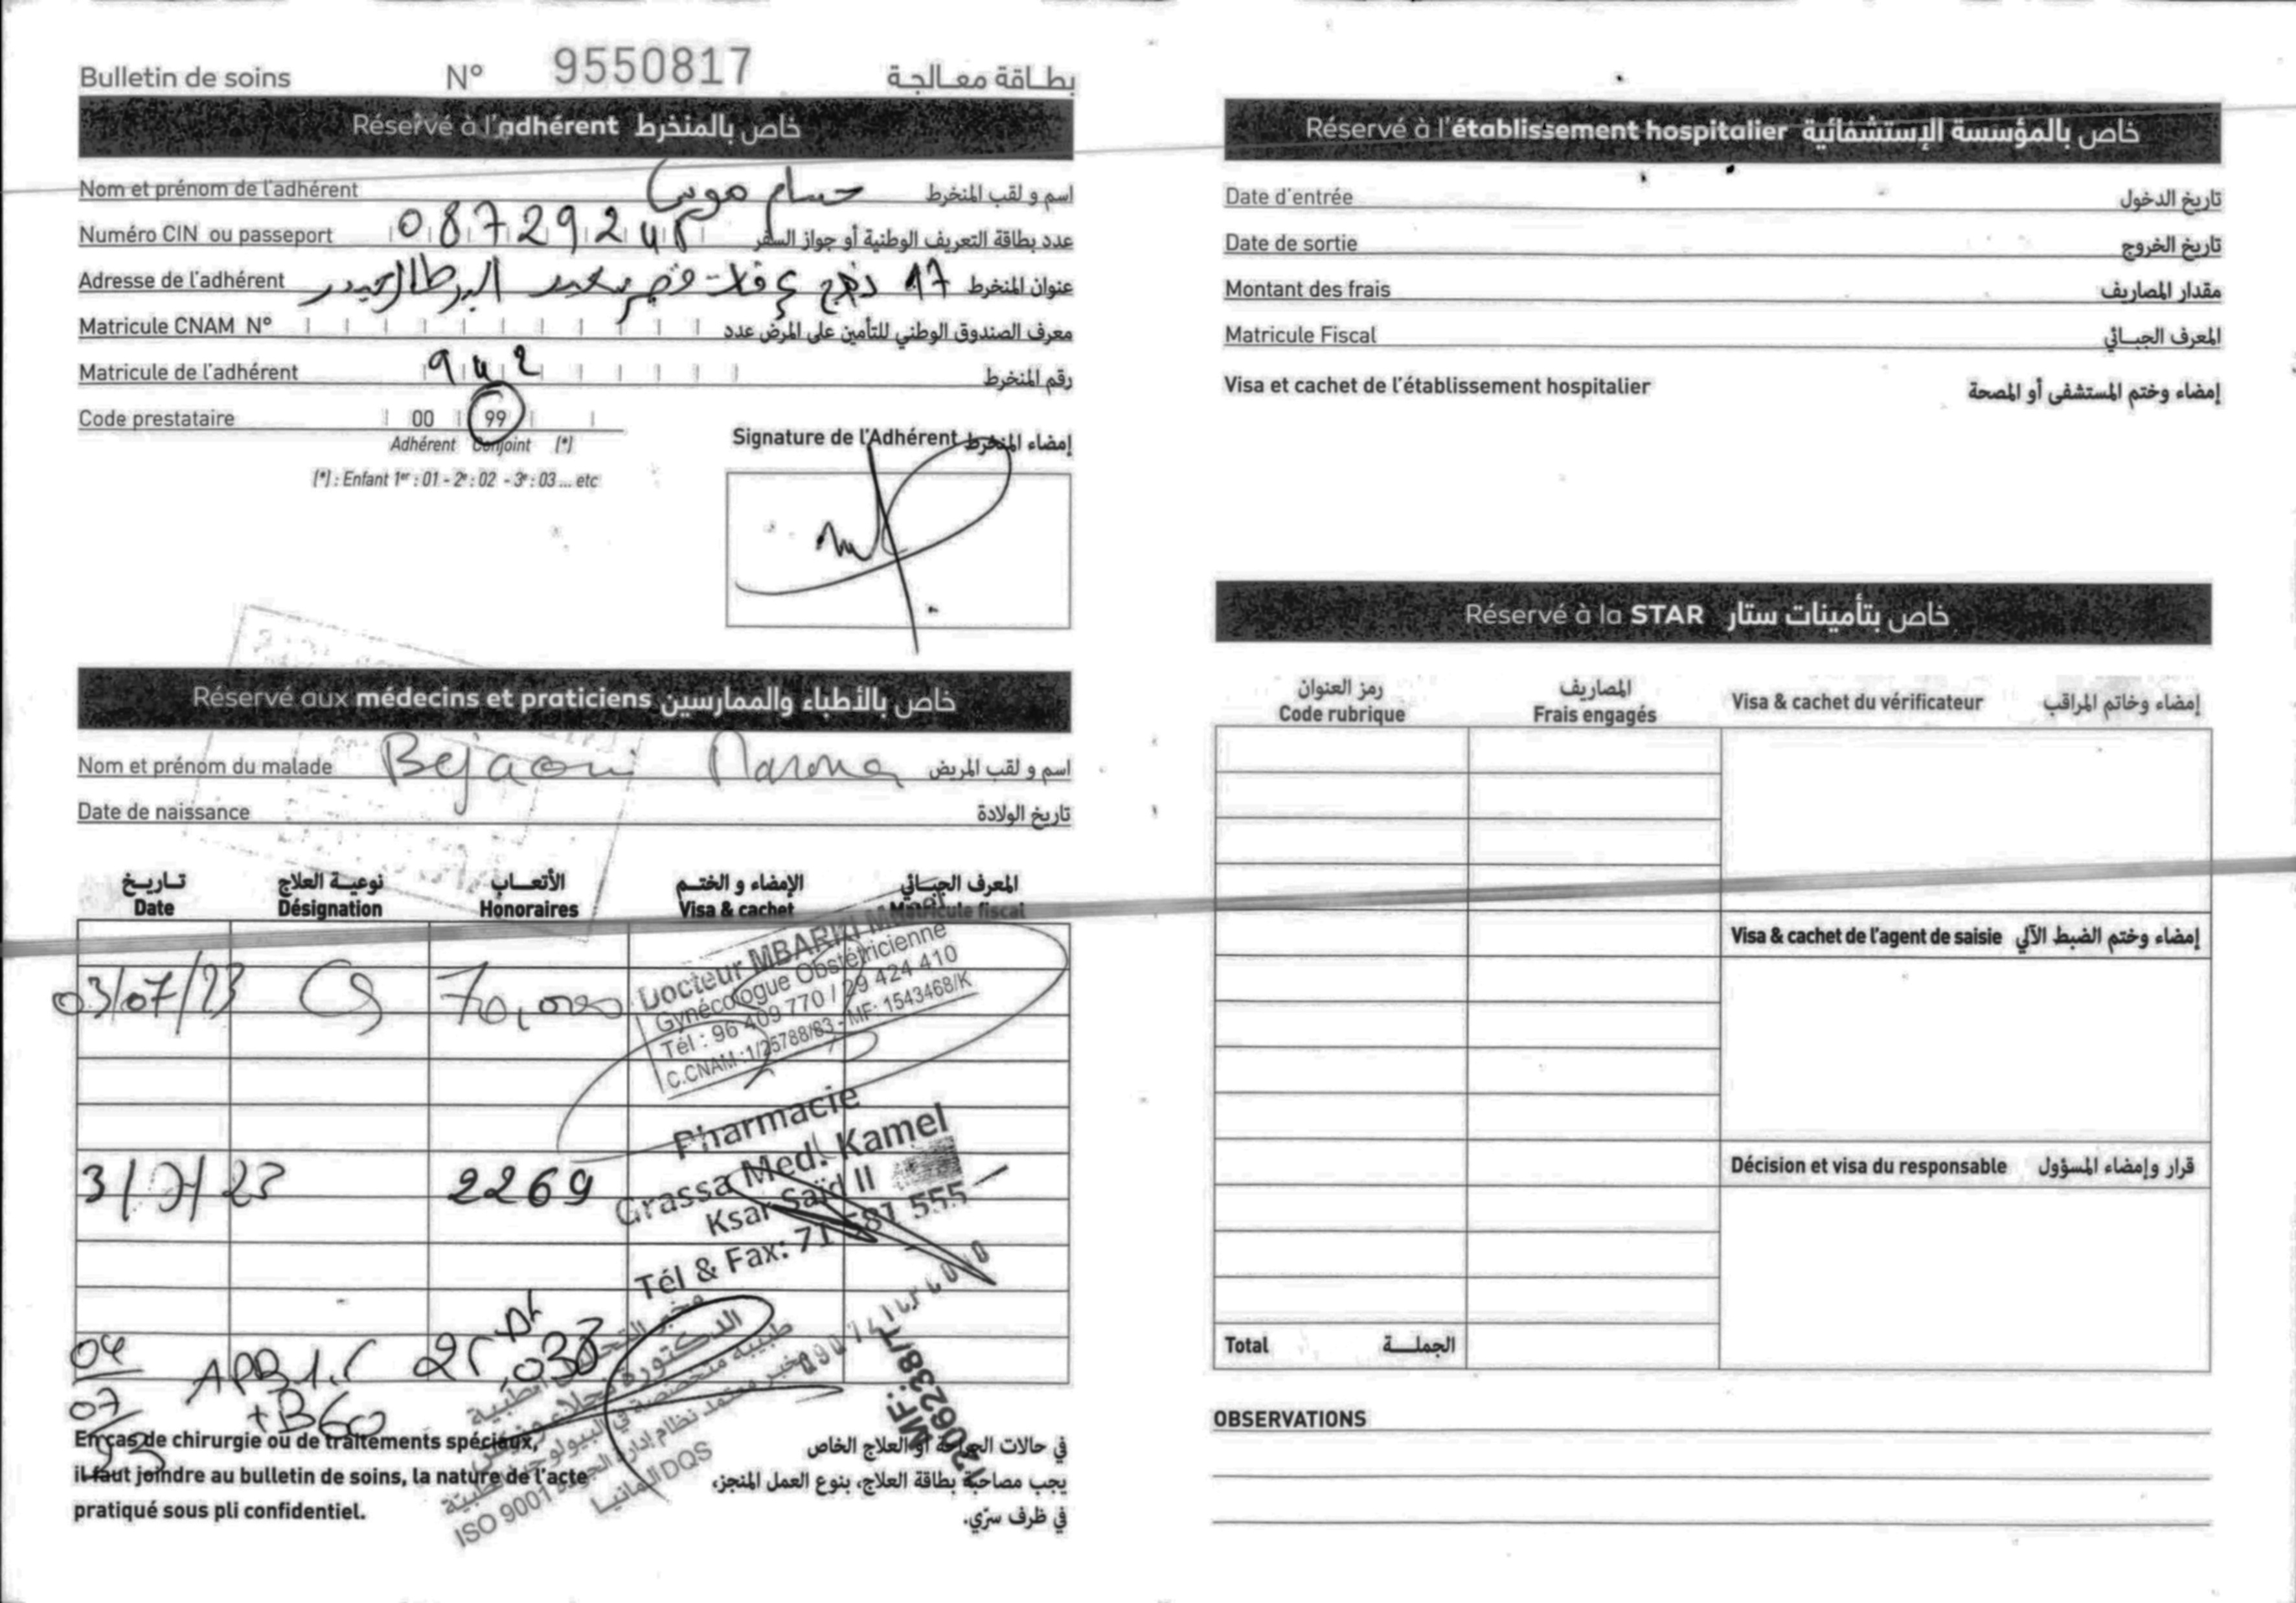 Bulletin de soins N° 9550817 بطاقة معالجة
Réservé à l'adhérent خاص بالمنخرط
Nom et prénom de l'adhérent حسام موسى اسم و لقب المنخرط
Numéro CIN ou passeport عدد بطاقة التعريف الوطنية أو جواز السفر
Adresse de l'adhérent 17 نهج عنوان المنخرط
Matricule CNAM N° معرف الصندوق الوطني للتأمين على المرض عدد
Matricule de l'adhérent 942 رقم المنخرط
Code prestataire 00 99
Adhérent Conjoint (*)
(*) : Enfant 1er : 01 - 2e : 02 - 3e : 03 ... etc
Signature de l'Adhérent إمضاء المنخرط
Réservé aux médecins et praticiens خاص بالأطباء والممارسين
Nom et prénom du malade Bejaoui اسم و لقب المريض
Date de naissance تاريخ الولادة
تاريخ نوعية العلاج الأتعاب الإمضاء و الختم المعرف الجبائي
Date Désignation Honoraires Visa & cachet Matricule fiscal
03/07/23 CS 70,000
Docteur MBARKI
Gynécologue Obstétricienne
Tél : 96 409 770 / 29 424 410
C.CNAM :1/25788/83 - MF: 1543468/K
Pharmacie
Grassa Med. Kamel
Ksar Saïd II
Tél & Fax: 71 581 555
3/7/23 2269
04 APB 1.5
07 + B60
23
مخبر التحاليل الطبية
الدكتورة نجلاء
طبيبة متخصصة في البيولوجيا الطبية
مخبر معتمد نظام إدارة الجودة
ISO 9001 DQS المانيا
En cas de chirurgie ou de traitements spéciaux,
il faut joindre au bulletin de soins, la nature de l'acte
pratiqué sous pli confidentiel.
في حالات الجراحة أو العلاج الخاص
يجب مصاحبة بطاقة العلاج، بنوع العمل المنجز،
في ظرف سرّي.
Réservé à l'établissement hospitalier خاص بالمؤسسة الإستشفائية
Date d'entrée تاريخ الدخول
Date de sortie تاريخ الخروج
Montant des frais مقدار المصاريف
Matricule Fiscal المعرف الجبائي
Visa et cachet de l'établissement hospitalier إمضاء وختم المستشفى أو المصحة
Réservé à la STAR خاص بتأمينات ستار
رمز العنوان المصاريف
Code rubrique Frais engagés Visa & cachet du vérificateur إمضاء وخاتم المراقب
Visa & cachet de l'agent de saisie إمضاء وختم الضبط الآلي
Décision et visa du responsable قرار وإمضاء المسؤول
Total الجملة
OBSERVATIONS